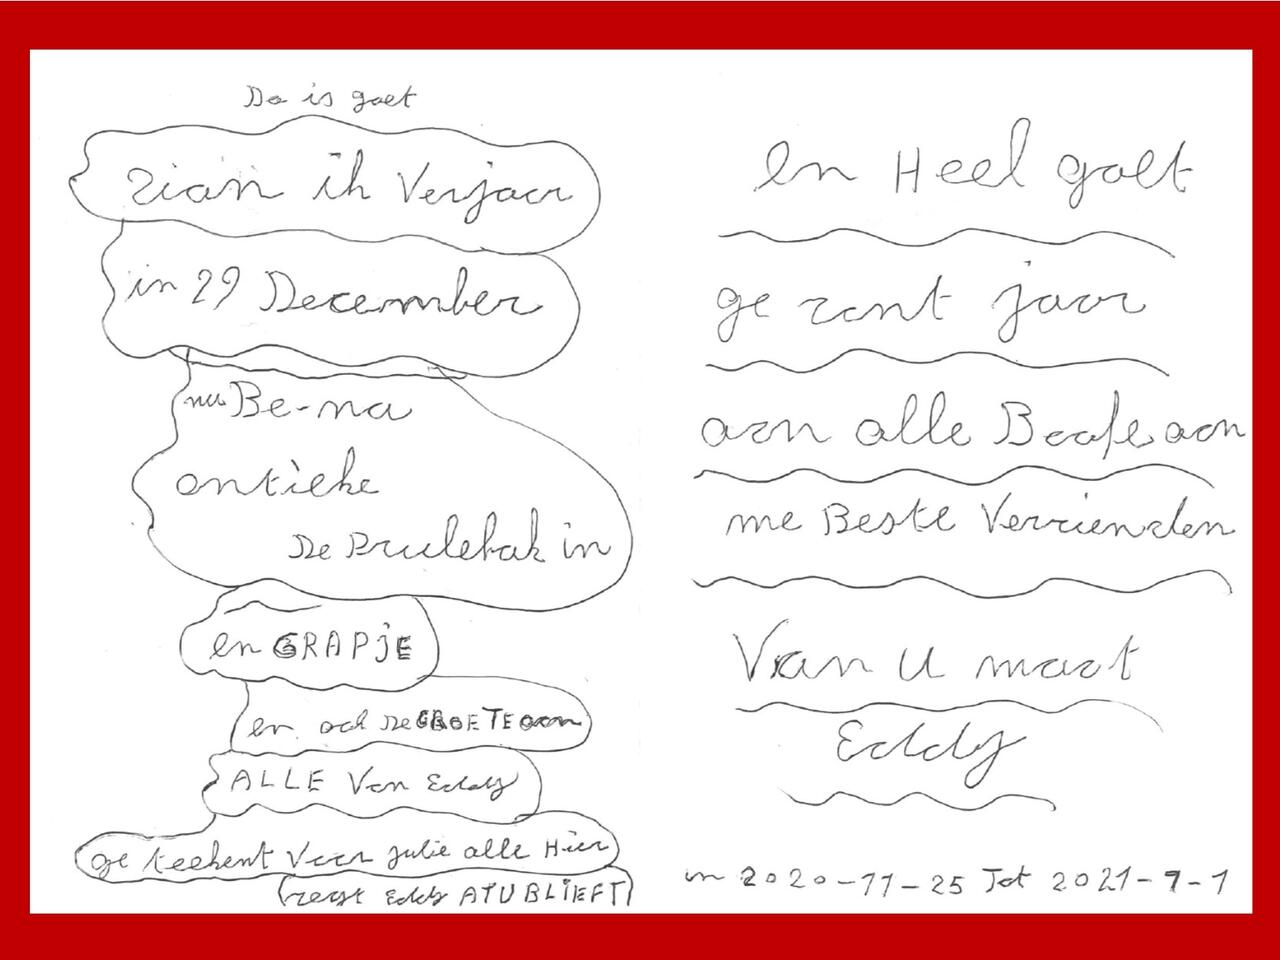 Da is goet
zian ik Verjaar
in 29 December
nu Be-na
antieke
De Prulebak in
en GRAPJE
en ock De GROETE aan
ALLE Van Eddy
ge teekent Veer julie alle Hier
zegt Eddy ATUBLIEFT
en Heel goet
ge zont jaar
aan alle Boofe aan
me Beste Verrienden
Van U maat
Eddy
in 2020-11-25 Tot 2021-1-1